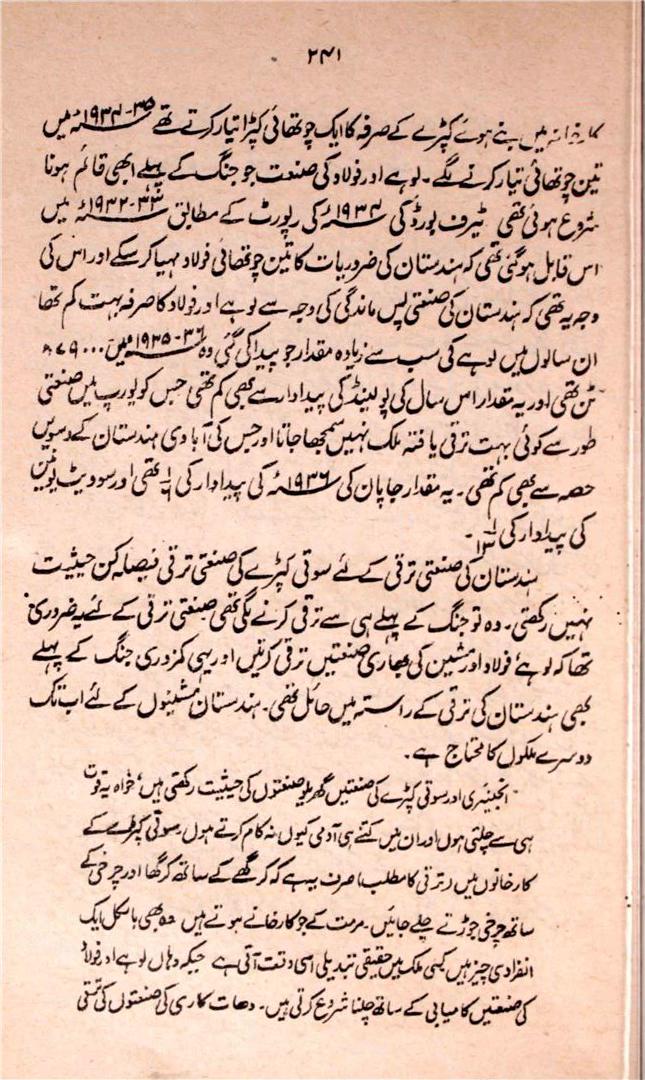 ۲۴۱
کارخانہ میں بنے ہوئے کپڑے کے صرفہ کا ایک چوتھائی کپڑا تیار کرتے تھے ۳۵-۱۹۳۴ء میں
تین چوتھائی تیار کرنے لگے۔ لوہے اور فولاد کی صنعت جو جنگ کے پہلے ابھی قائم ہونا
شروع ہوئی تھی ٹیرف بورڈ کی ۱۹۳۴ء کی رپورٹ کے مطابق ۳۳-۱۹۳۲ء میں
اس قابل ہو گئی تھی کہ ہندستان کی ضروریات کا تین چوتھائی فولاد مہیا کر سکے اور اس کی
وجہ یہ تھی کہ ہندستان کی صنعتی پس ماندگی کی وجہ سے لوہے اور فولاد کا صرفہ بہت کم تھا
ان سالوں میں لوہے کی سب سے زیادہ مقدار جو پیدا کی گئی وہ ۳۶-۱۹۳۵ء میں ۸۷۹۰۰۰
ٹن تھی اور یہ مقدار اس سال کی پولینڈ کی پیداوار سے بھی کم تھی جس کو یورپ میں صنعتی
طور سے کوئی بہت ترقی یافتہ ملک نہیں سمجھا جاتا اور جس کی آبادی ہندستان کے دسویں
حصہ سے بھی کم تھی۔ یہ مقدار جاپان کی ۱۹۳۶ء کی پیداوار کی ۱/۶ تھی اور سوویٹ یونین
کی پیداوار کی ۱/۱۳۔
ہندستان کی صنعتی ترقی کے لئے سوتی کپڑے کی صنعتی ترقی فیصلہ کن حیثیت
نہیں رکھتی۔ وہ تو جنگ کے پہلے ہی سے ترقی کرنے لگی تھی صنعتی ترقی کے لئے یہ ضروری
تھا کہ لوہے، فولاد اور مشین کی بھاری صنعتیں ترقی کرتیں اور یہی کمزوری جنگ کے پہلے
بھی ہندستان کی ترقی کے راستہ میں حائل تھی۔ ہندستان مشینوں کے لئے اب تک
دوسرے ملکوں کا محتاج ہے۔
"انجنیئری اور سوتی کپڑے کی صنعتیں گھریلو صنعتوں کی حیثیت رکھتی ہیں، خواہ یہ قوت
ہی سے چلتی ہوں اور ان میں کتنے ہی آدمی کیوں نہ کام کرتے ہوں۔ سوتی کپڑے کے
کارخانوں میں ترقی کا مطلب صرف یہ ہے کہ کرگھے کے ساتھ کرگھا اور چرخی کے
ساتھ چرخی جوڑتے چلے جائیں۔ مرمت کے جو کارخانے ہوتے ہیں وہ بھی بالکل ایک
انفرادی چیز ہیں کسی ملک میں حقیقی تبدیلی اسی وقت آتی ہے جبکہ وہاں لوہے اور فولاد
کی صنعتیں کامیابی کے ساتھ چلنا شروع کرتی ہیں۔ دھات کاری کی صنعتوں کی